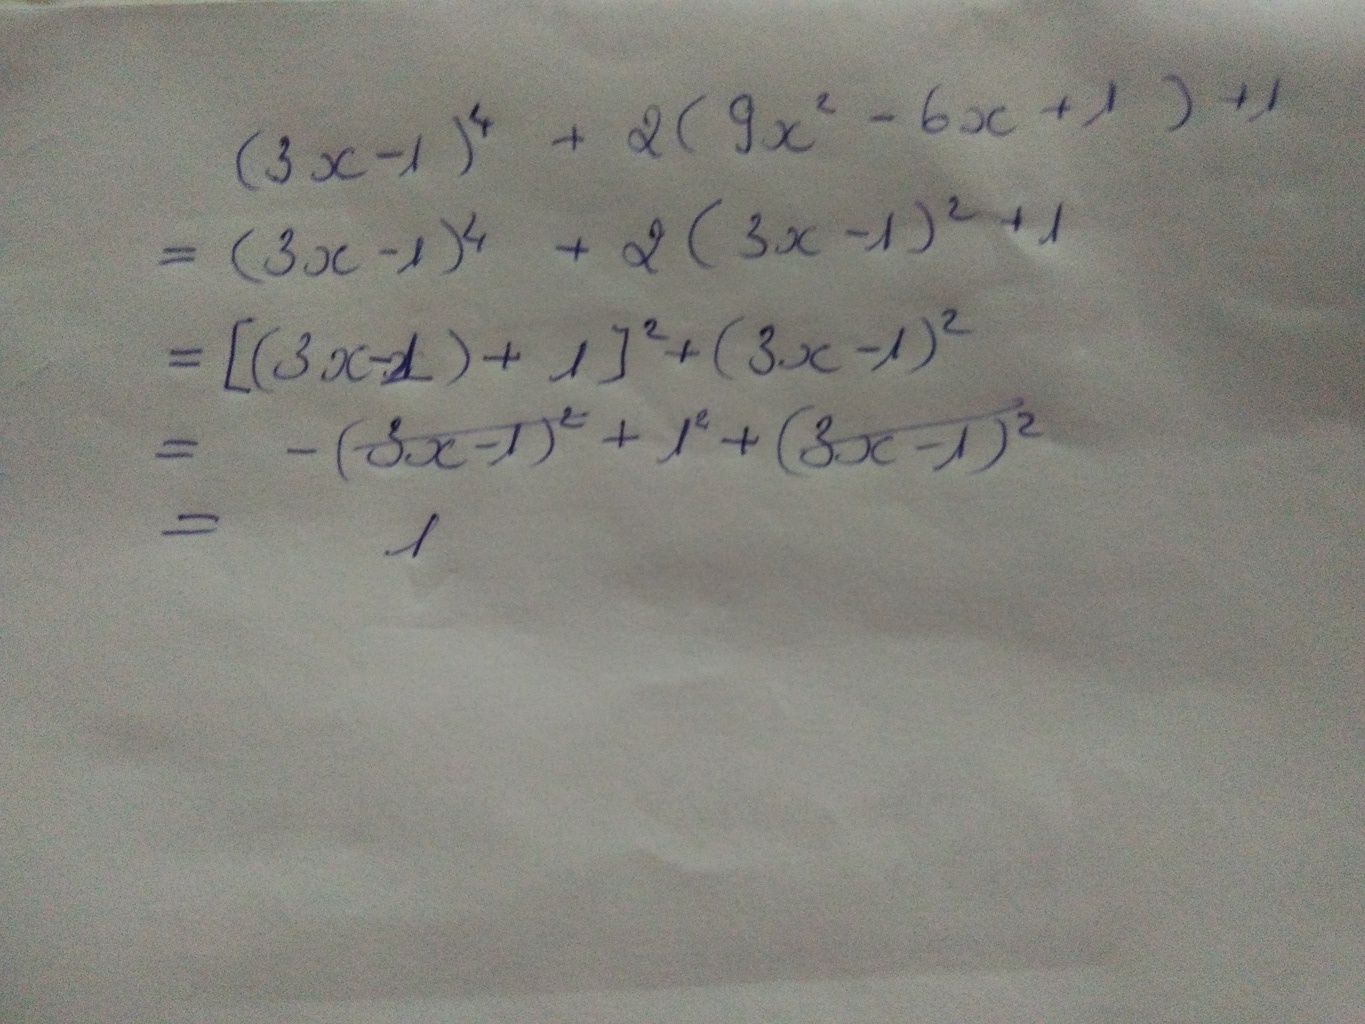 (3x-1)⁴ + 2(9x² - 6x + 1) + 1
= (3x-1)⁴ + 2(3x-1)² + 1
= [(3x-1) + 1]² + (3x-1)²
= -(3x-1)² + 1² + (3x-1)²
= 1